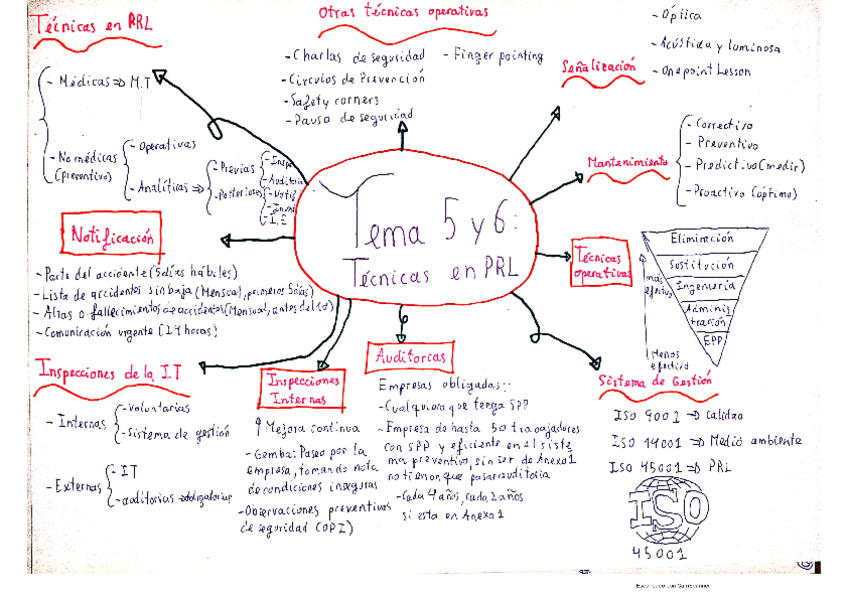 Técnicas en PRL
- Médicas => M.T
- No médicas
(preventivo)
- Operativas
- Analíticas =>
- Previas
- Posteriores
- Inspe
- Auditoria
- Notif
- I.E
Otras técnicas operativas
- Charlas de seguridad
- Finger pointing
- Circulos de Prevención
- Safety corners
- Pausa de seguridad
Señalización
- Óptica
- Acústica y luminosa
- One point Lesson
Mantenimiento
- Correctivo
- Preventivo
- Predictivo (medir)
- Proactivo (óptimo)
Tema 5 y 6:
Técnicas en PRL
Notificación
- Parte del accidente (5 días hábiles)
- Lista de accidentes sin baja (Mensual, primeros 5 días)
- Altas o fallecimientos de accidentes (Mensual, antes del 10)
- Comunicación urgente (24 horas)
Técnicas
operativas
Eliminación
Sustitución
Ingeniería
Adminis
tración
EPP
más
efectivo
Menos
efectivo
Inspecciones de la IT
- Internas
- Voluntarias
- Sistema de gestión
- Externas
- IT
- auditorias obligatorias
Inspecciones
Internas
↑ Mejora continua
- Gemba: Paseo por la
empresa, tomando nota
de condiciones inseguras
- Observaciones preventivas
de seguridad (OPS)
Auditorías
Empresas obligadas:
- Cualquiera que tenga SPP
- Empresa de hasta 50 trabajadores
con SPP y eficiente en el siste
ma preventivo, sin ser de Anexo 1
no tienen que pasar auditoria
- Cada 4 años, cada 2 años
si esta en Anexo 1
Sistema de Gestión
ISO 9001 => Calidad
ISO 14001 => Medio ambiente
ISO 45001 => PRL
ISO
45001
Escaneado con CamScanner